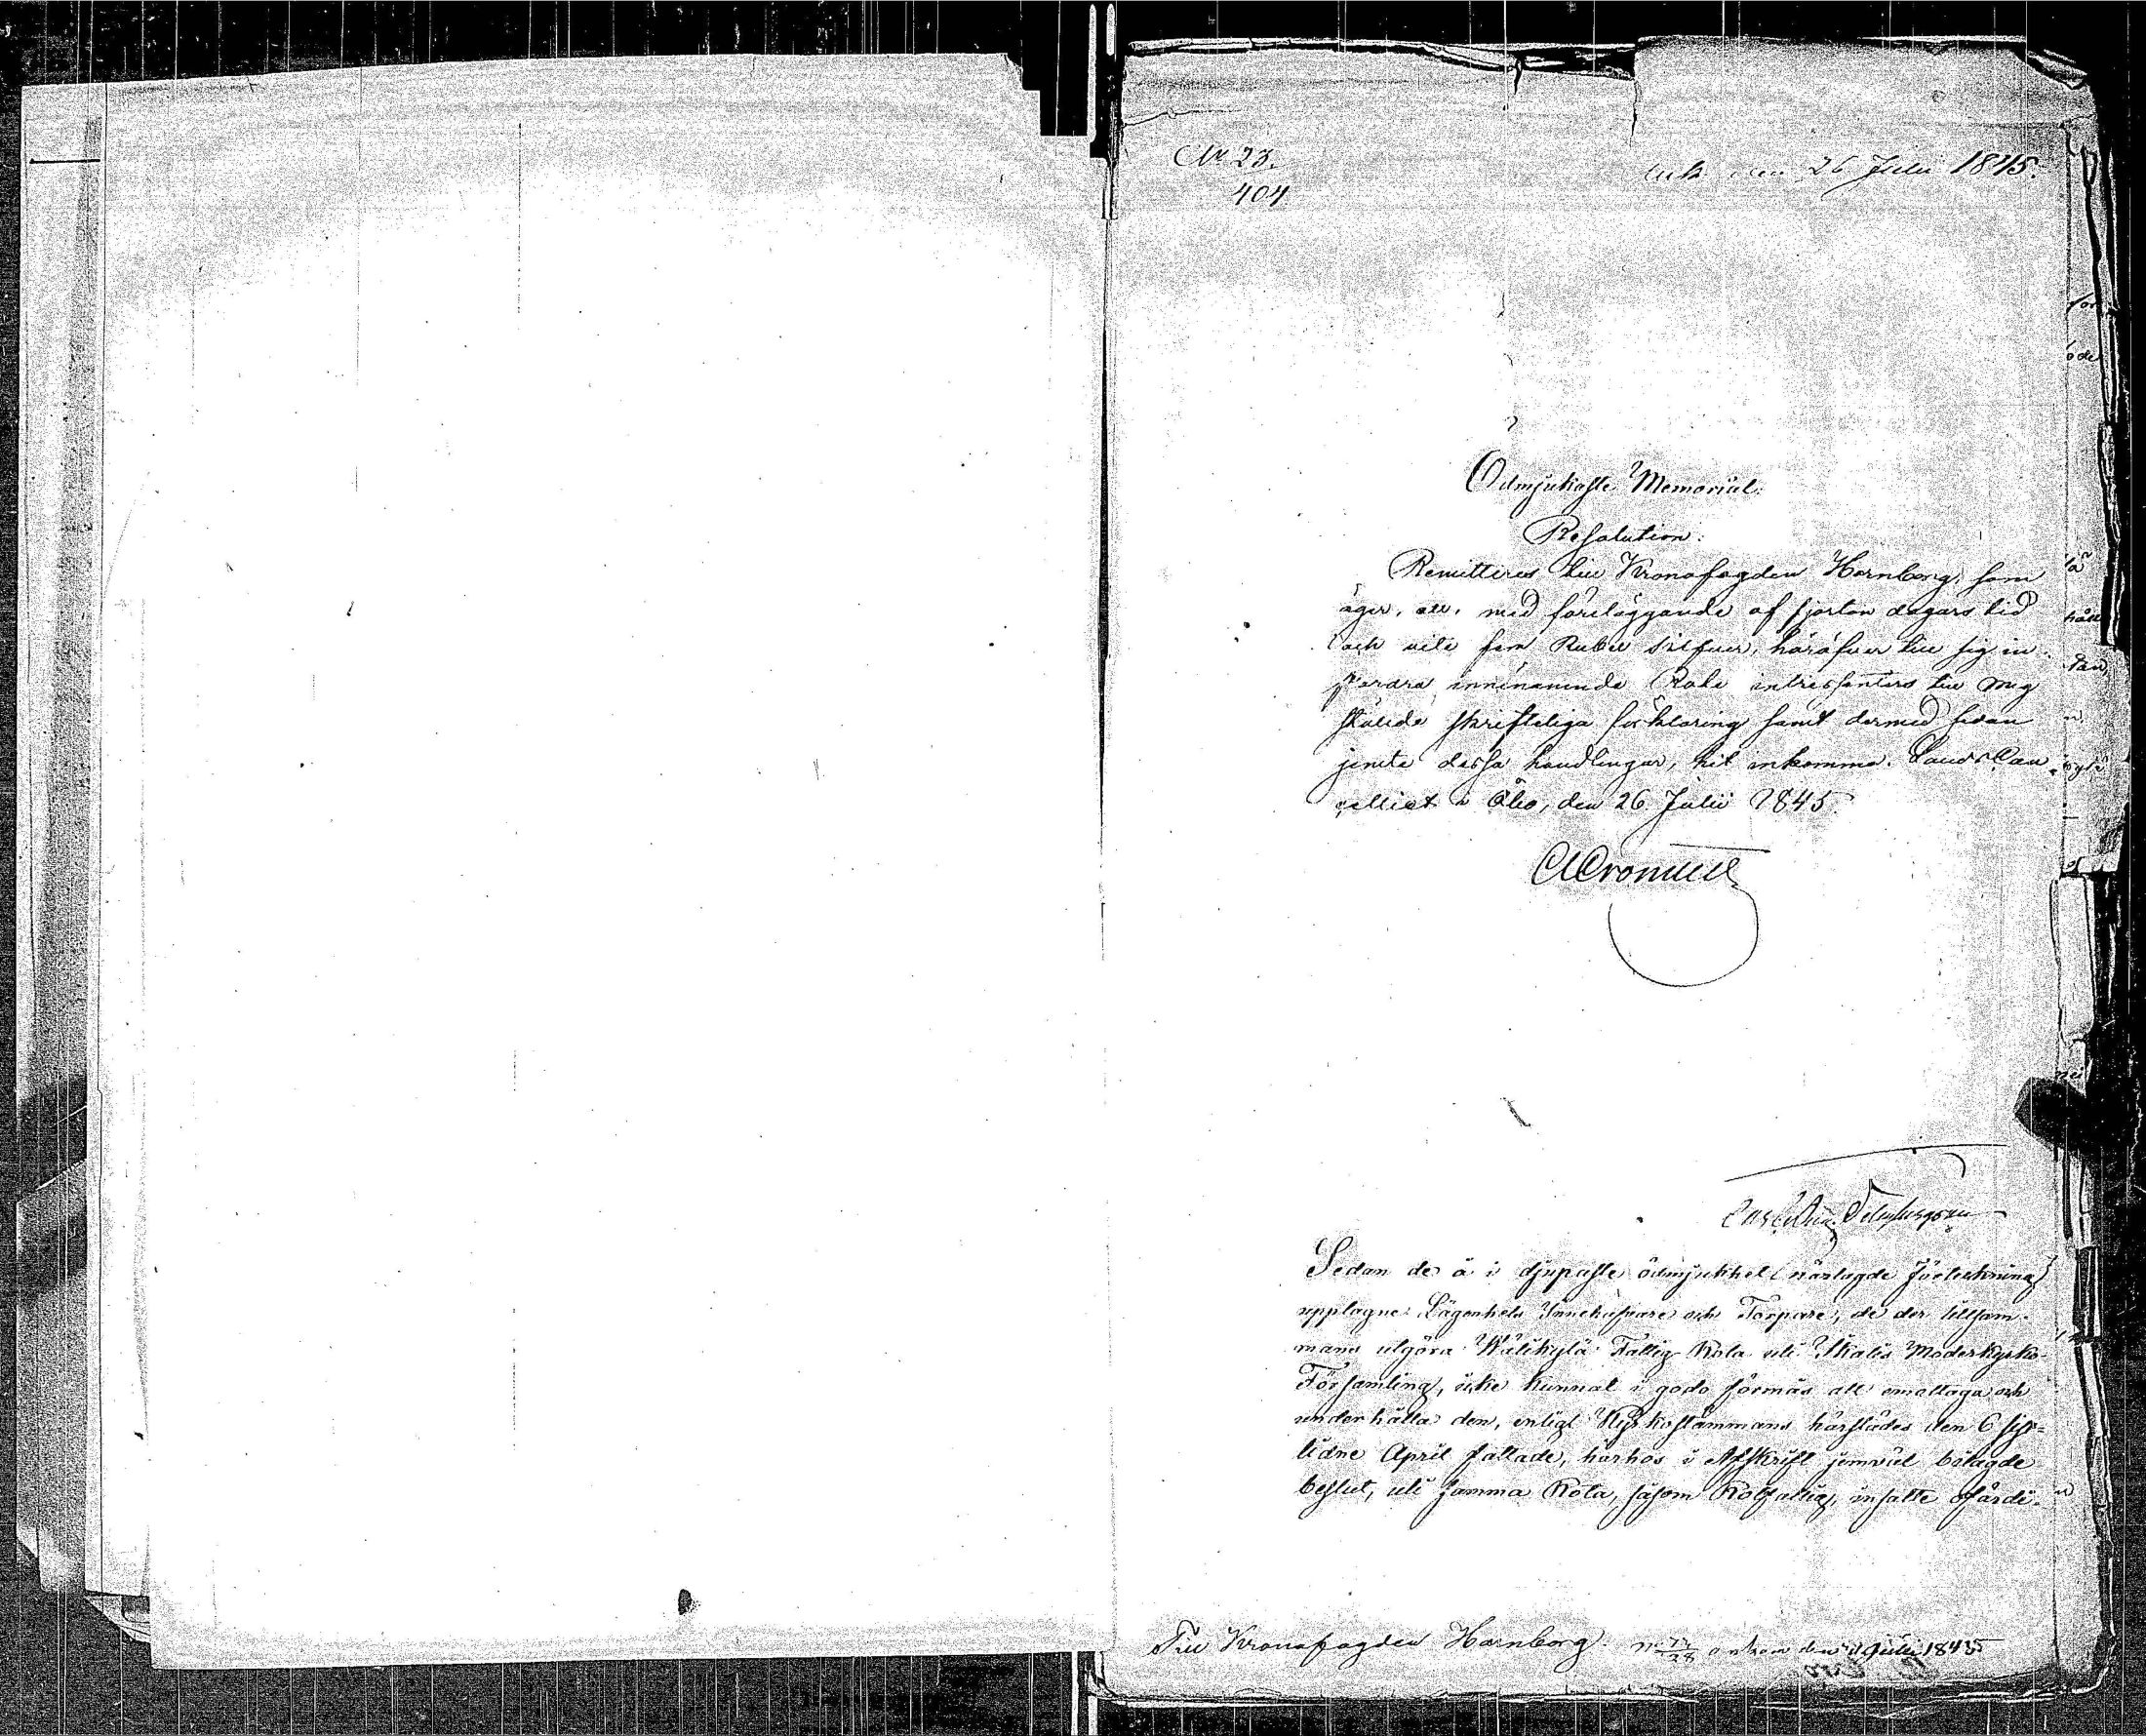 No 23.
404
Ink den 26 Julii 1845.
Ödmjukaste Memorial.
Resolution.
Remitteres till Kronofogden Hornborg, som
äger, att, med föreläggande af fjorton dagars tid
och vite fem Rubel silfver, häröfver till sig in
fordra innenämnde Rote intressenters till mig
stälde skrifteliga förklaring samt dermed sedan
jemte dessa handlingar, hit inkomma. Lands Can
celliet i Åbo, den 26 Julii 1845.
Cronstedt
Sedan de å i djupaste ödmjukhet närlagde Förteckning
upptagne Lägenhets Innehafvare och Torpare, de der tillsam-
mans utgöra Wälikylä Fattig-Rota uti Ikalis Moderkyrko-
Församling, icke kunnat i godo förmås att emottaga och
underhålla den, enligt Kyrkostämmans härstädes den 6 sist-
lidne April fattade, härhos i Afskrift jemväl bilagde
beslut, uti samma Rota, såsom Rotfattig, insatte ofärdi-
Till Kronofogden Hornborg.
ankom den Julii 1845